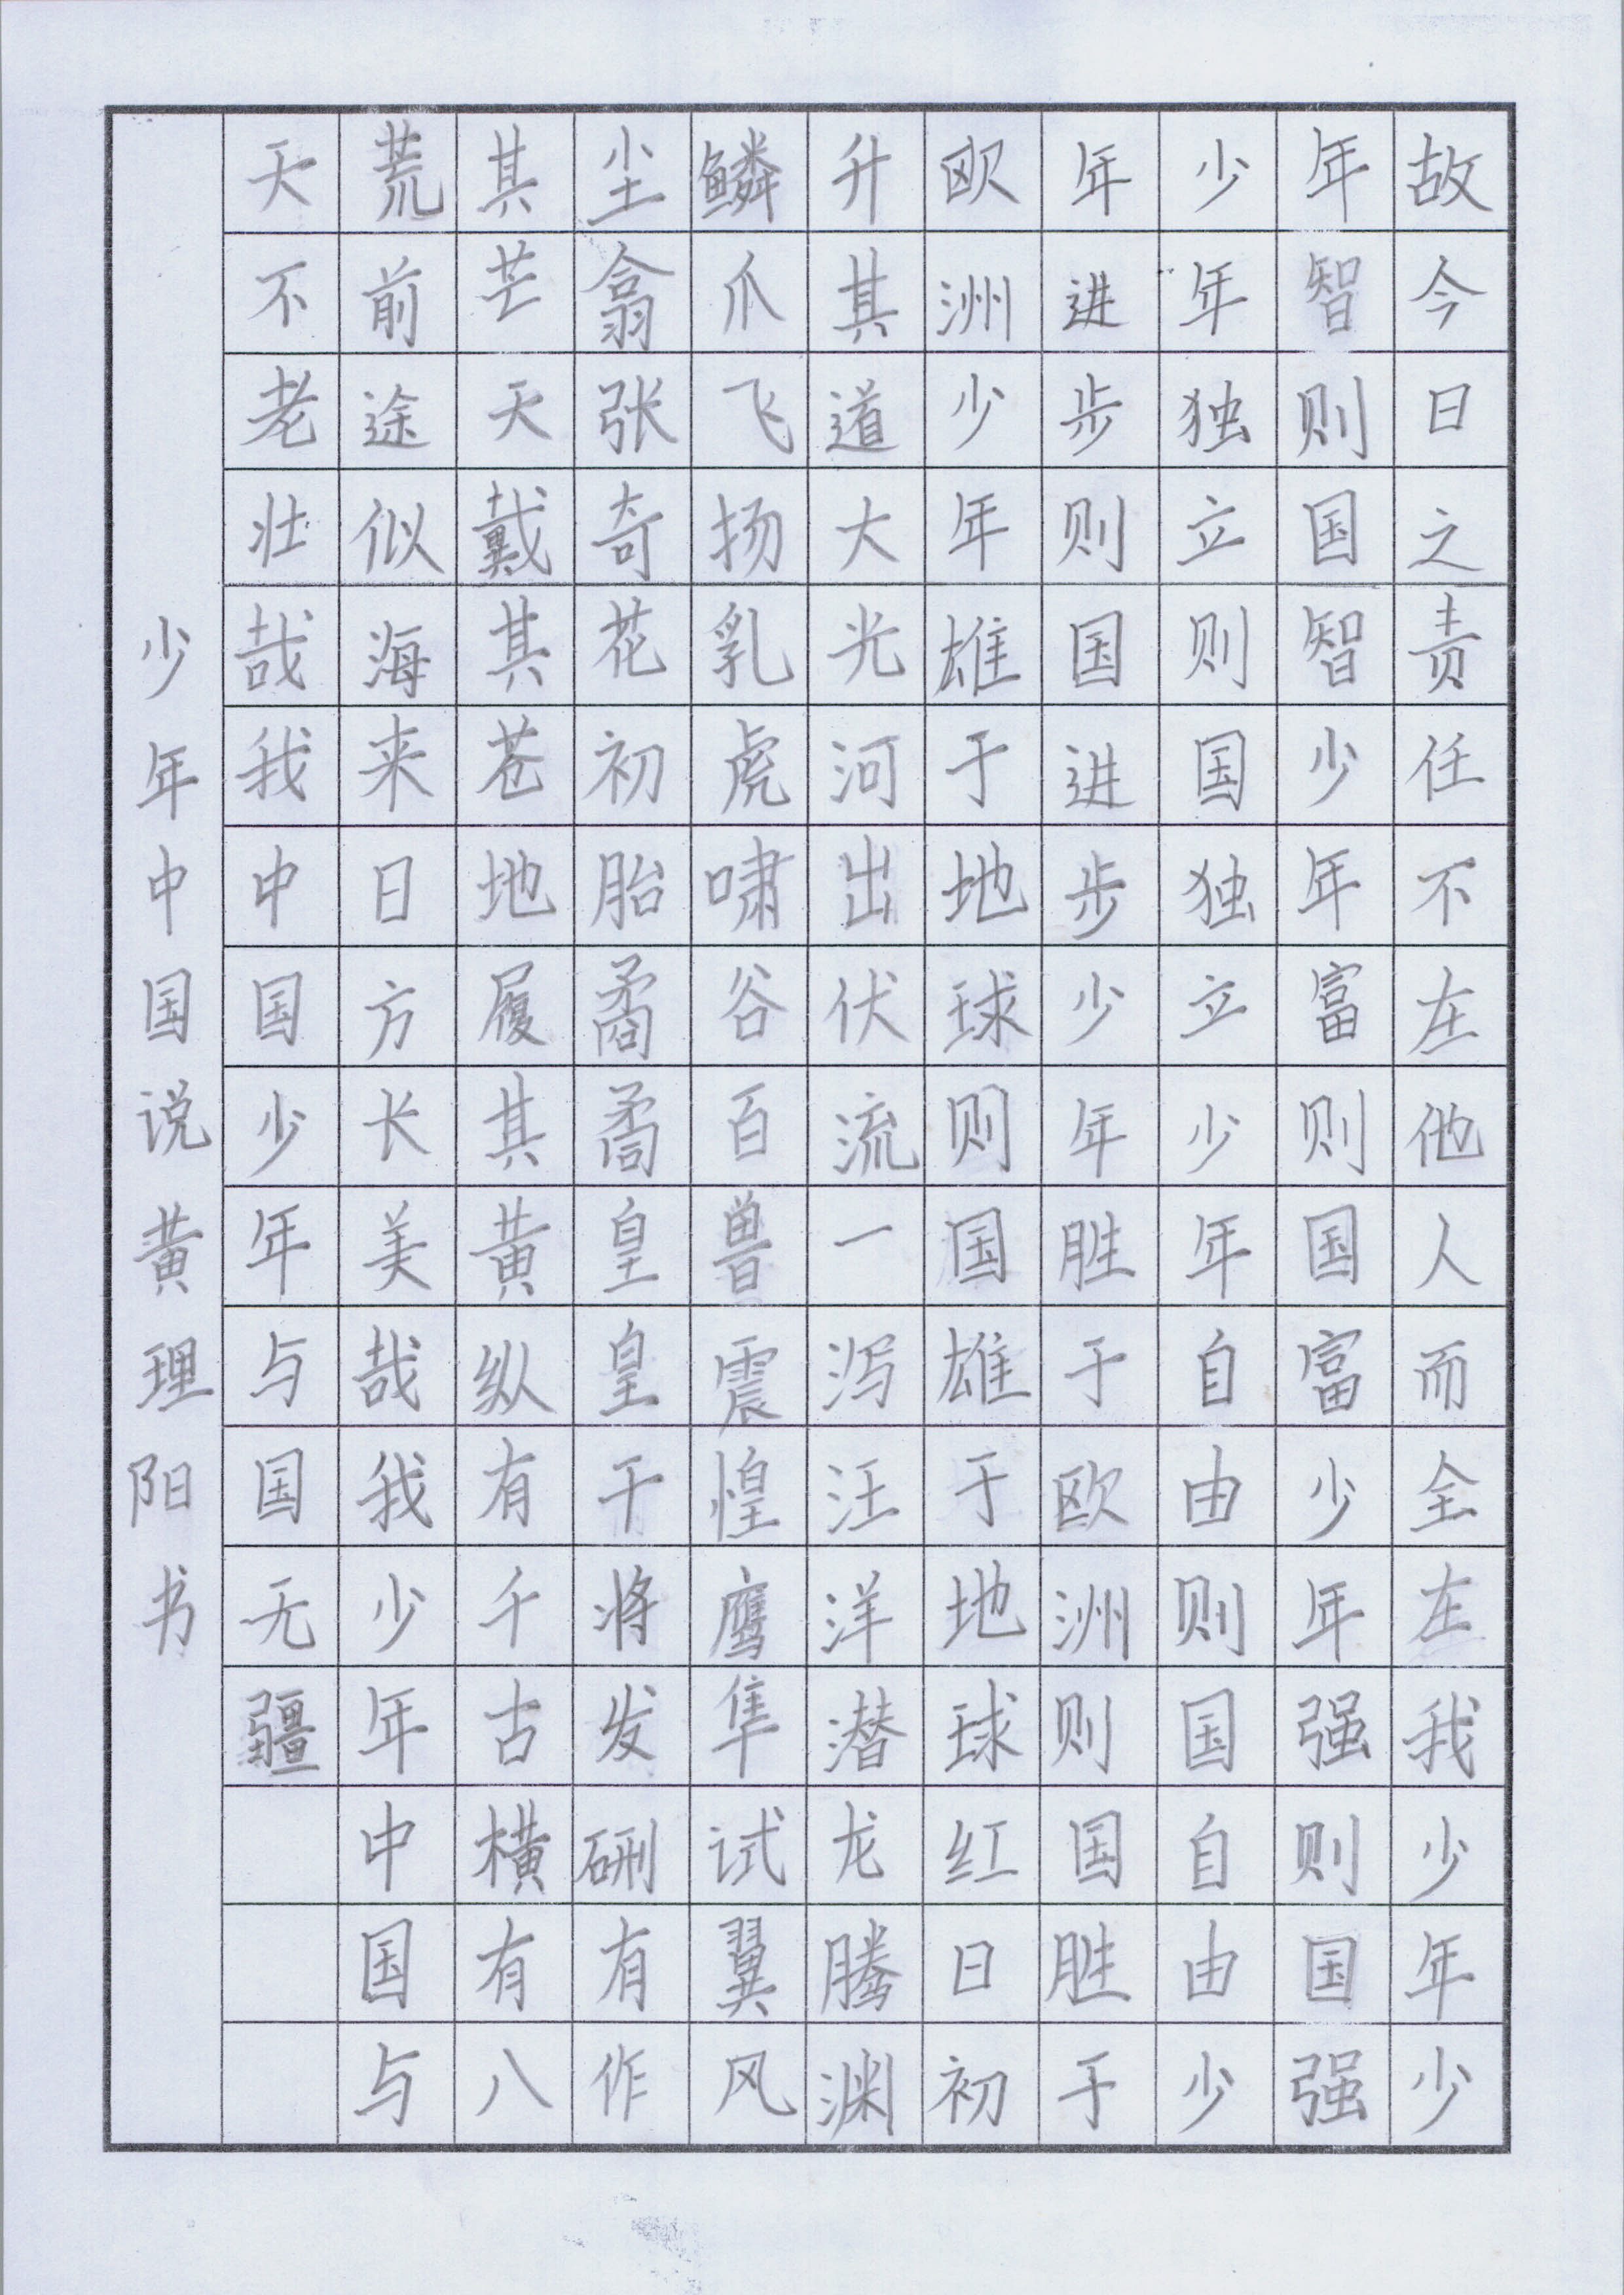 故今日之责任不在他人而全在我少年少
年智则国智少年富则国富少年强则国强
少年独立则国独立少年自由则国自由少
年进步则国进步少年胜于欧洲则国胜于
欧洲少年雄于地球则国雄于地球红日初
升其道大光河出伏流一泻汪洋潜龙腾渊
鳞爪飞扬乳虎啸谷百兽震惶鹰隼试翼风
尘翕张奇花初胎矞矞皇皇干将发硎有作
其芒天戴其苍地履其黄纵有千古横有八
荒前途似海来日方长美哉我少年中国与
天不老壮哉我中国少年与国无疆
少年中国说黄理阳书